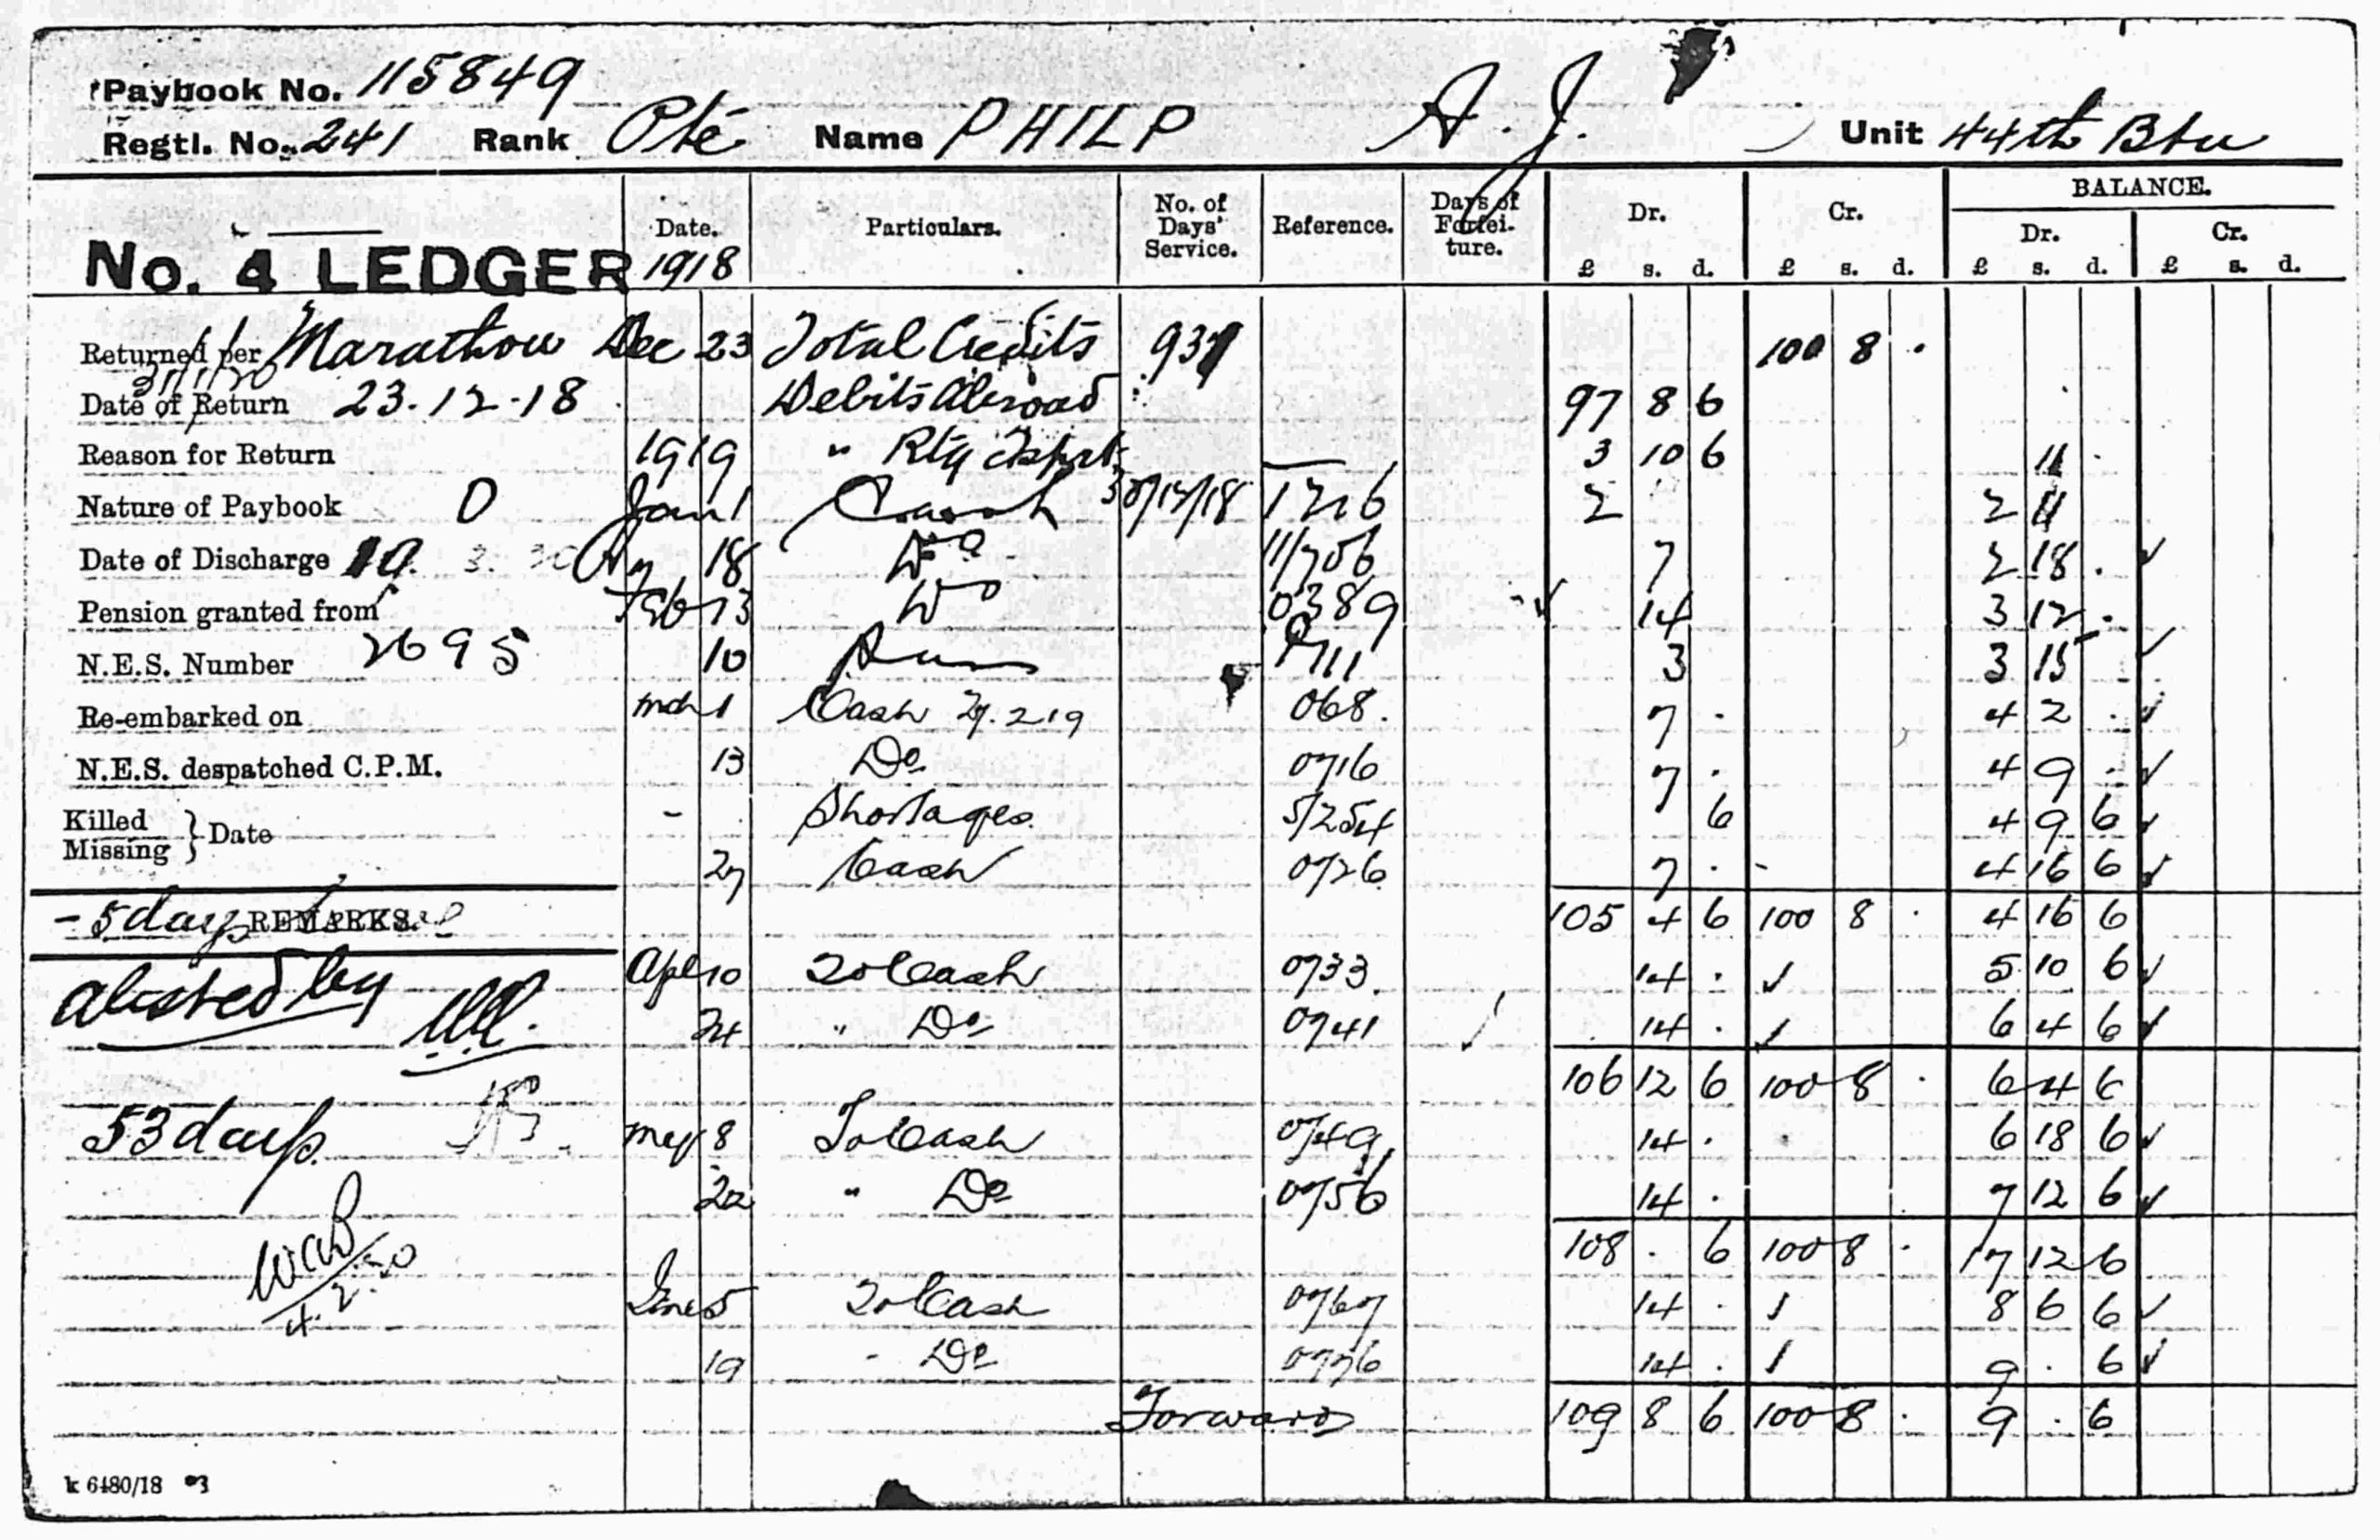 Paybook No. 115849
Regtl. No. 241 Rank Pte Name PHILP A. J. Unit 44th Btn
No. 4 LEDGER
Date. 1918 Particulars. No. of Days' Service. Reference. Days of Forfei-ture. Dr. £ s. d. Cr. £ s. d. BALANCE. Dr. £ s. d. Cr. £ s. d.
Returned per Marathon Dec 23 Total Credits 100 8 .
Date of Return 23.12.18 Debits Abroad 97 8 6
Reason for Return 1919 " 3 10 6 11 .
Nature of Paybook D Jan 1 Cash 30/12/18 1216 2 2 11
Date of Discharge 18 Do 11/706 7 2 18 .
Pension granted from Feb 13 Do 0389 14 3 12 .
N.E.S. Number 2695 10 3 3 15
Re-embarked on Mch 1 Cash 27.2.19 068. 7 . 4 2 .
N.E.S. despatched C.P.M. 13 Do 0716 7 . 4 9 .
Killed Missing } Date - Shortages 5/254 6 4 9 6
27 Cash 0726 7 . - 4 16 6
- 5 days REMARKS. 105 4 6 100 8 . 4 16 6
Apl 10 To Cash 0733. 14 . 5 10 6
24 " Do 0741 14 . 6 4 6
106 12 6 100 8 . 6 4 6
53 days. May 8 To Cash 0749, 14 . 6 18 6
22 " Do 0756 14 . 7 12 6
108 . 6 100 8 . 7 12 6
4.2.20 June 5 To Cash 0767 14 . 8 6 6
19 - Do 0776 14 . 9 . 6
Forward 109 8 6 100 8 . 9 . 6
k 6480/18